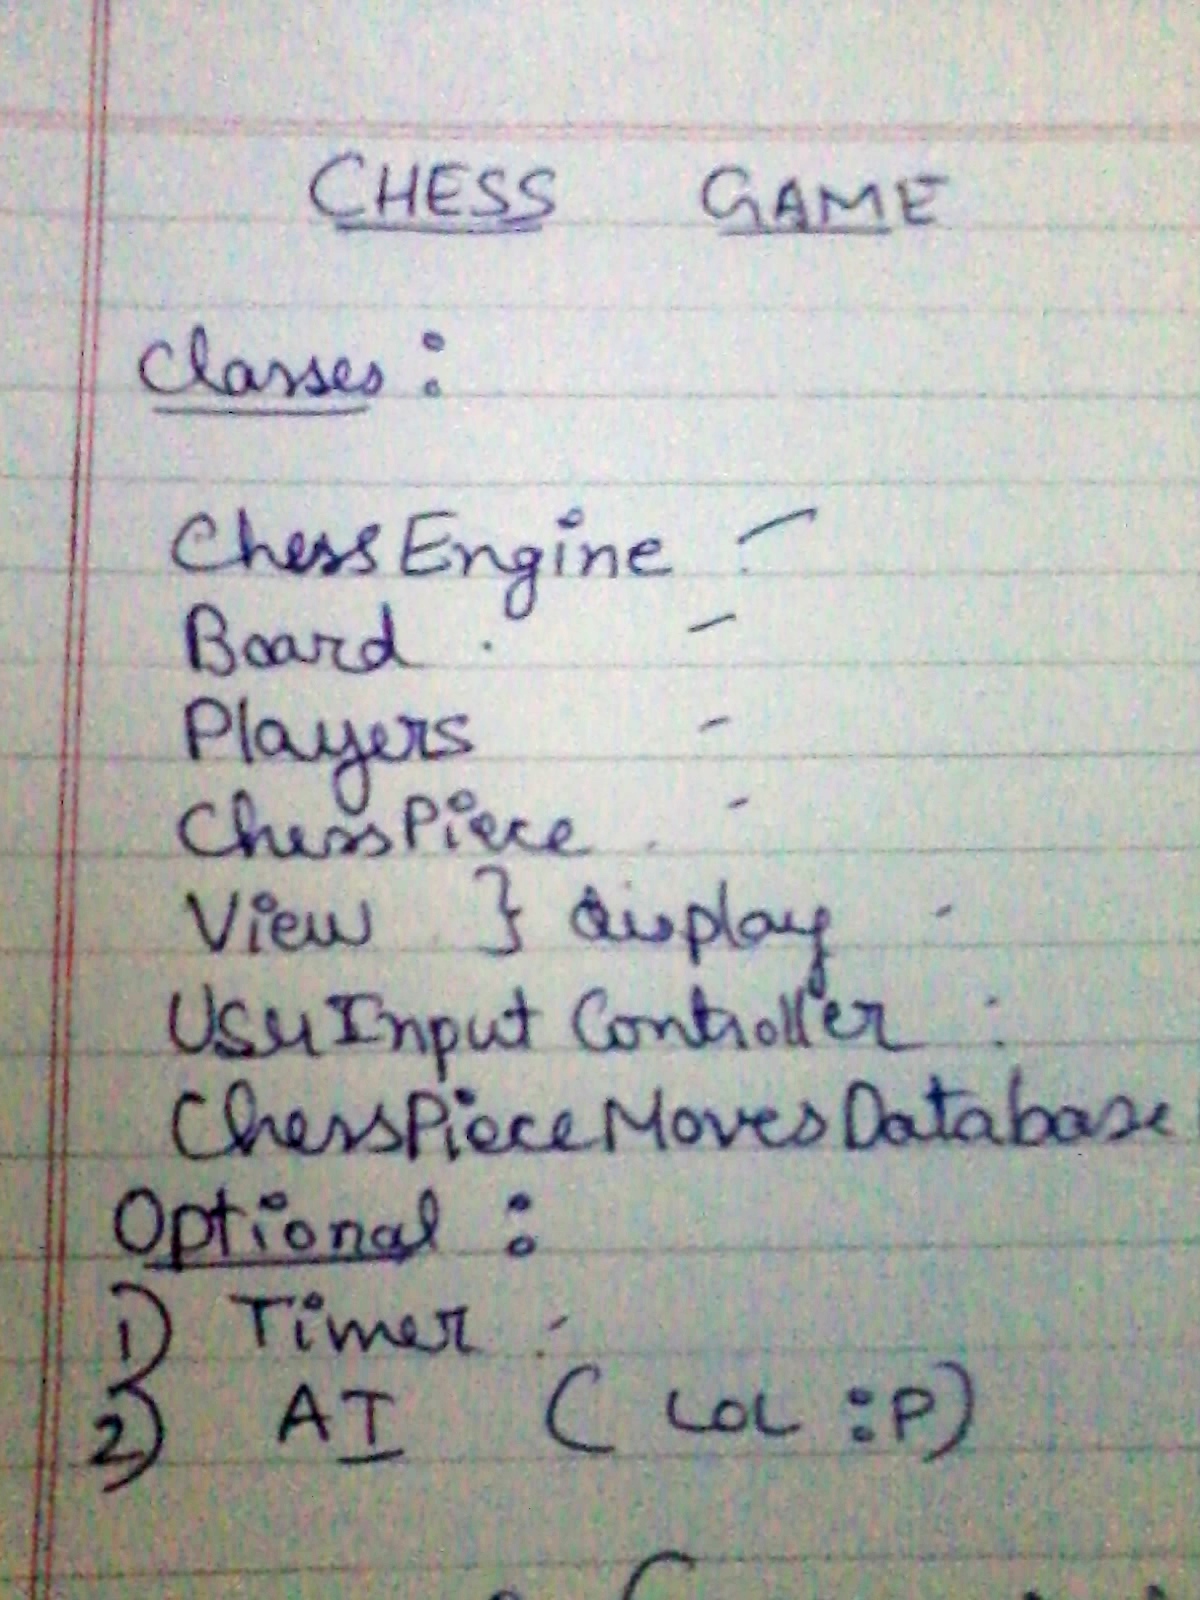 CHESS GAME
Classes :
ChessEngine -
Board . -
Players -
ChessPiece . -
View } display -
UserInput Controller :
ChessPieceMovesDatabase
Optional :
1) Timer -
2) AI ( LOL :P)